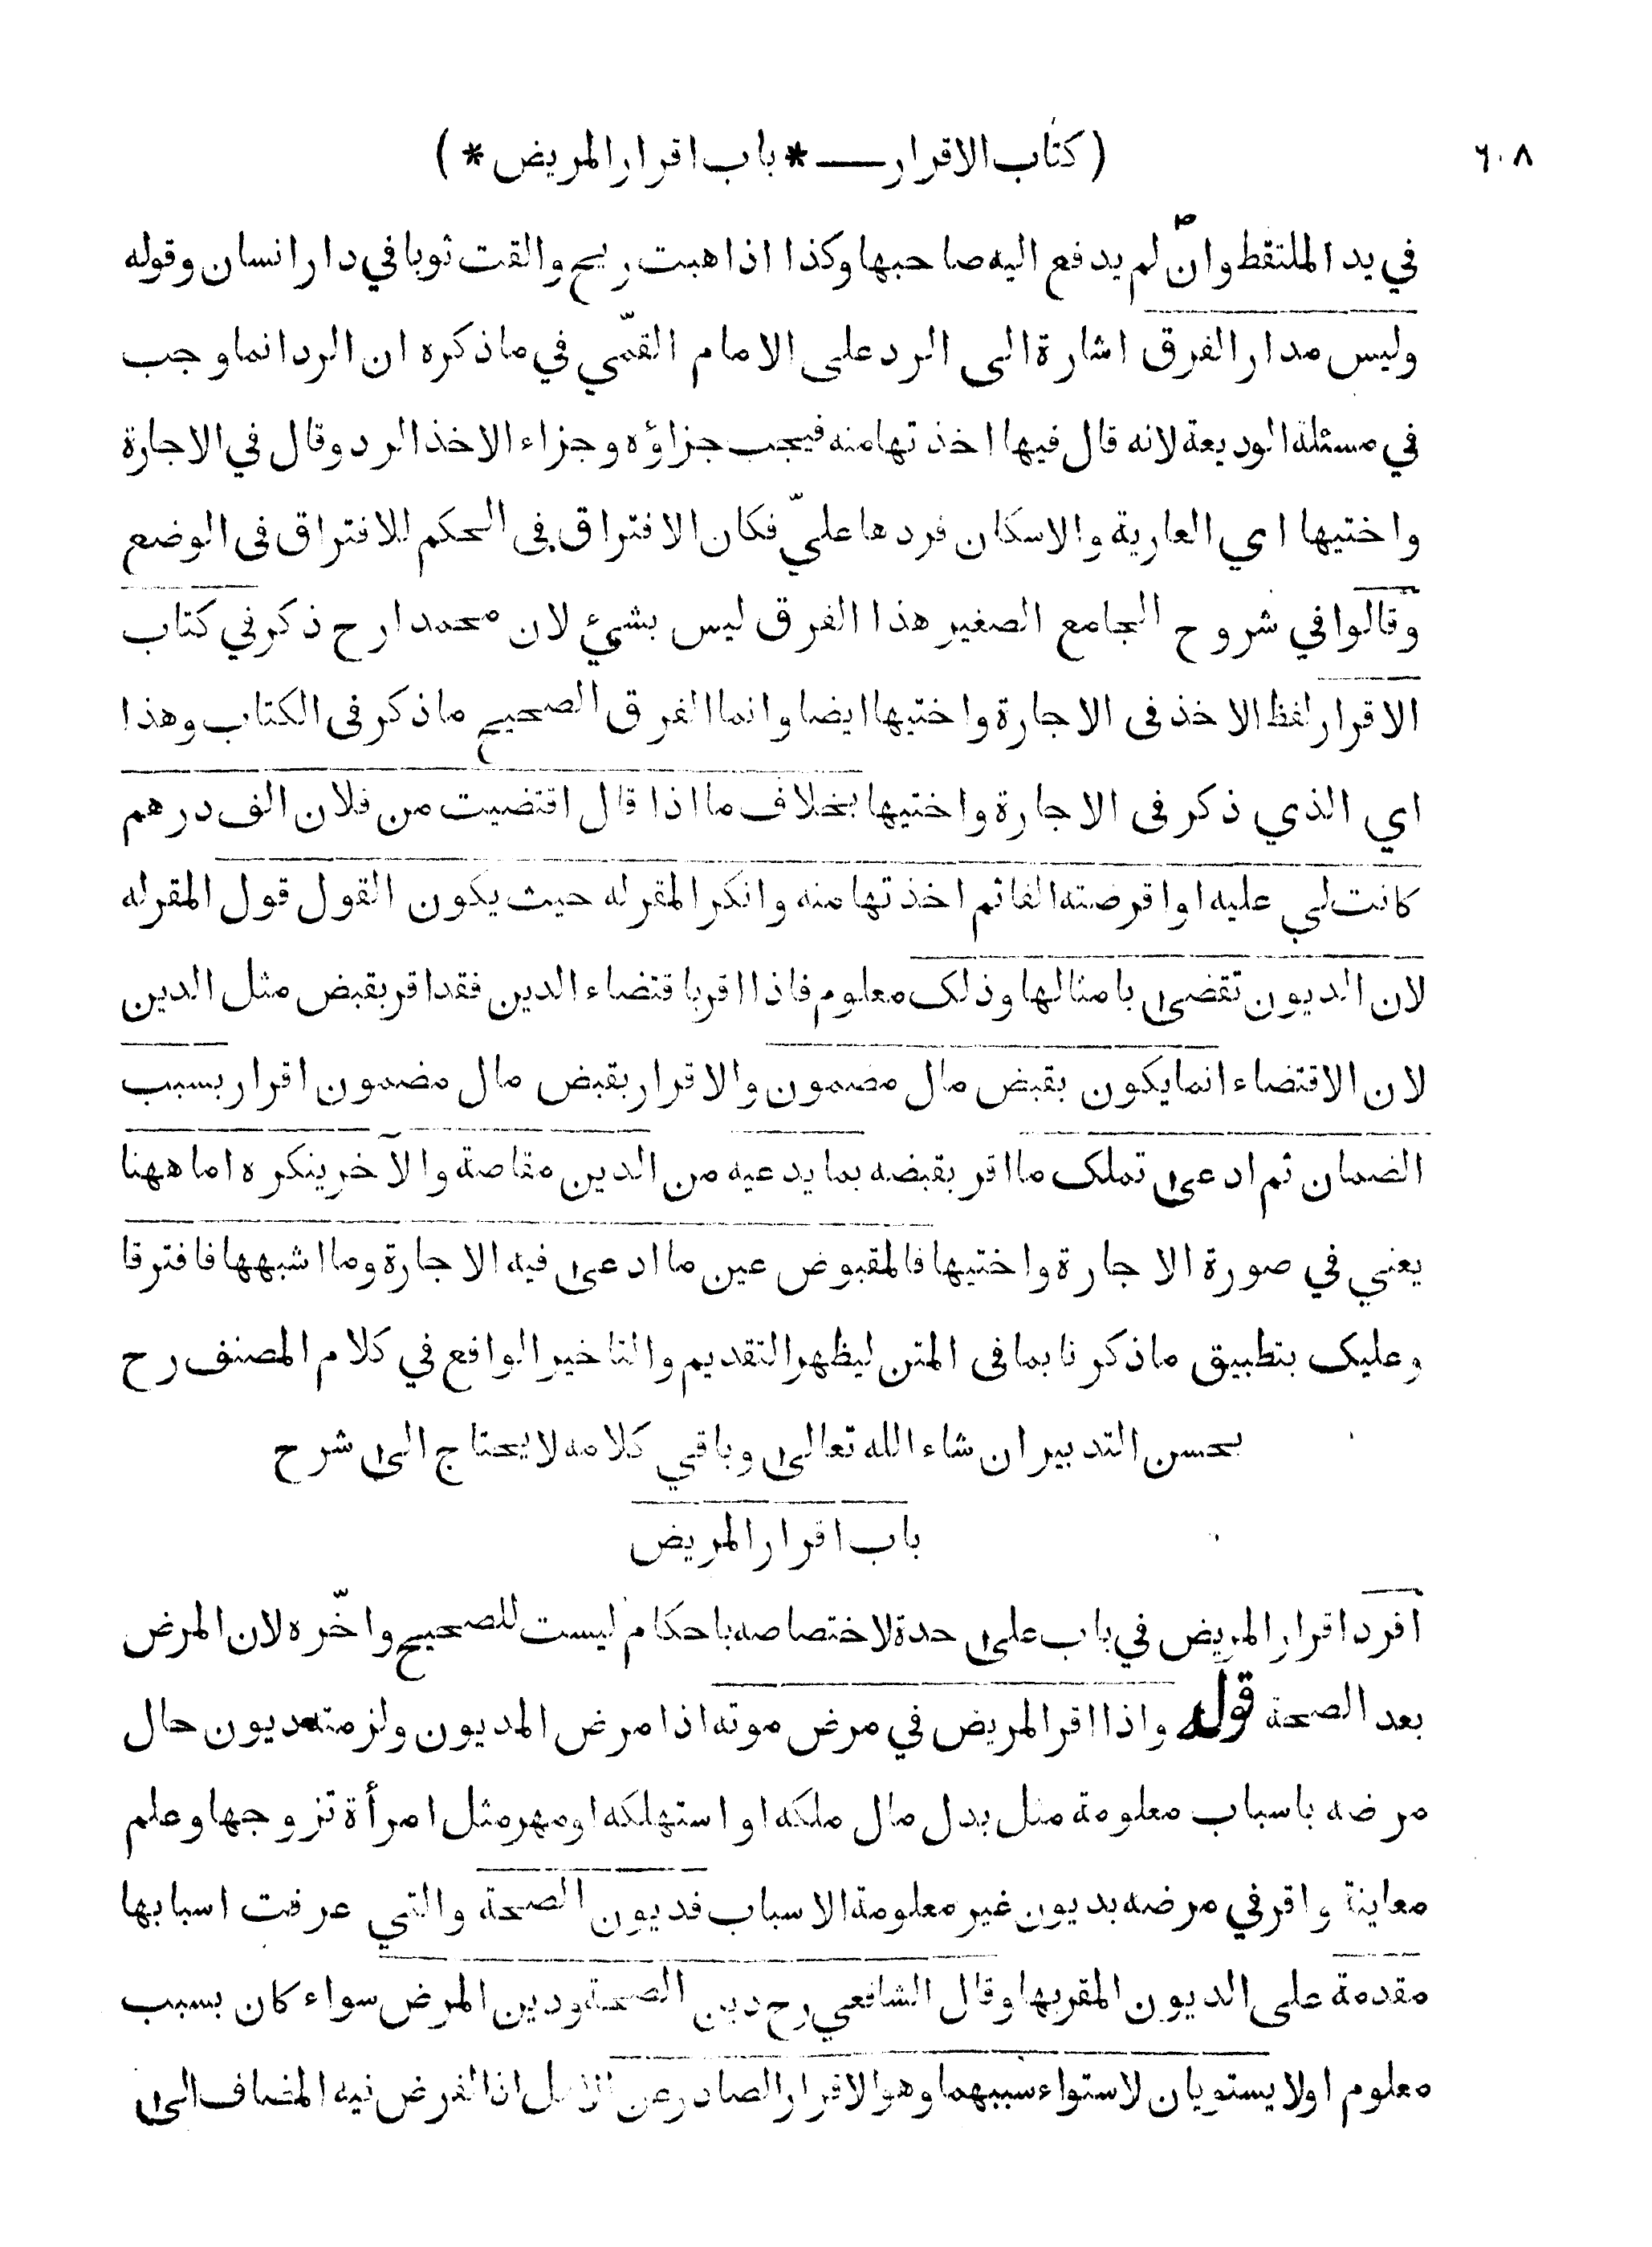 ٦٠٨ ( كتاب الاقرار — * باب اقرار المريض * )
في يد الملتقط وان لم يدفع اليه صاحبها وكذا اذا هبت ريح والقت ثوبا في دار انسان وقوله
وليس مدار الفرق اشارة الى الرد على الامام القمّي في ما ذكره ان الرد انما وجب
في مسئلة الوديعة لانه قال فيها اخذتها منه فيجب جزاؤه وجزاء الاخذ الرد وقال في الاجارة
واختيها اي العارية والاسكان فردها عليّ فكان الافتراق في الحكم للافتراق في الوضع
وقالوا في شروح الجامع الصغير هذا الفرق ليس بشيء لان محمدا رح ذكر في كتاب
الاقرار لفظ الاخذ في الاجارة واختيها ايضا وانما الفرق الصحيح ما ذكر في الكتاب وهذا
اي الذي ذكر في الاجارة واختيها بخلاف ما اذا قال اقتضيت من فلان الف درهم
كانت لي عليه او اقرضته الفا ثم اخذتها منه وانكر المقر له حيث يكون القول قول المقر له
لان الديون تقضى بامثالها وذلك معلوم فاذا اقر باقتضاء الدين فقد اقر بقبض مثل الدين
لان الاقتضاء انما يكون بقبض مال مضمون والاقرار بقبض مال مضمون اقرار بسبب
الضمان ثم ادعى تملك ما اقر بقبضه بما يدعيه من الدين مقاصة والآخر ينكره اما ههنا
يعني في صورة الاجارة واختيها فالمقبوض عين ما ادعى فيه الاجارة وما اشبهها فافترقا
وعليك بتطبيق ما ذكرنا بما في المتن ليظهر التقديم والتاخير الواقع في كلام المصنف رح
بحسن التدبير ان شاء الله تعالى وباقي كلامه لا يحتاج الى شرح
باب اقرار المريض
افرد اقرار المريض في باب على حدة لاختصاصه باحكام ليست للصحيح واخّره لان المرض
بعد الصحة قوله واذا اقر المريض في مرض موته اذا مرض المديون ولزمته ديون حال
مرضه باسباب معلومة مثل بدل مال ملكه او استهلكه او مهر مثل امرأة تزوجها وعلم
معاينة واقر في مرضه بديون غير معلومة الاسباب فديون الصحة والتي عرفت اسبابها
مقدمة على الديون المقر بها وقال الشافعي رح دين الصحة ودين المرض سواء كان بسبب
معلوم اولا يستويان لاستواء سببهما وهو الاقرار الصادر عن اذا الفرض فيه المضاف الى